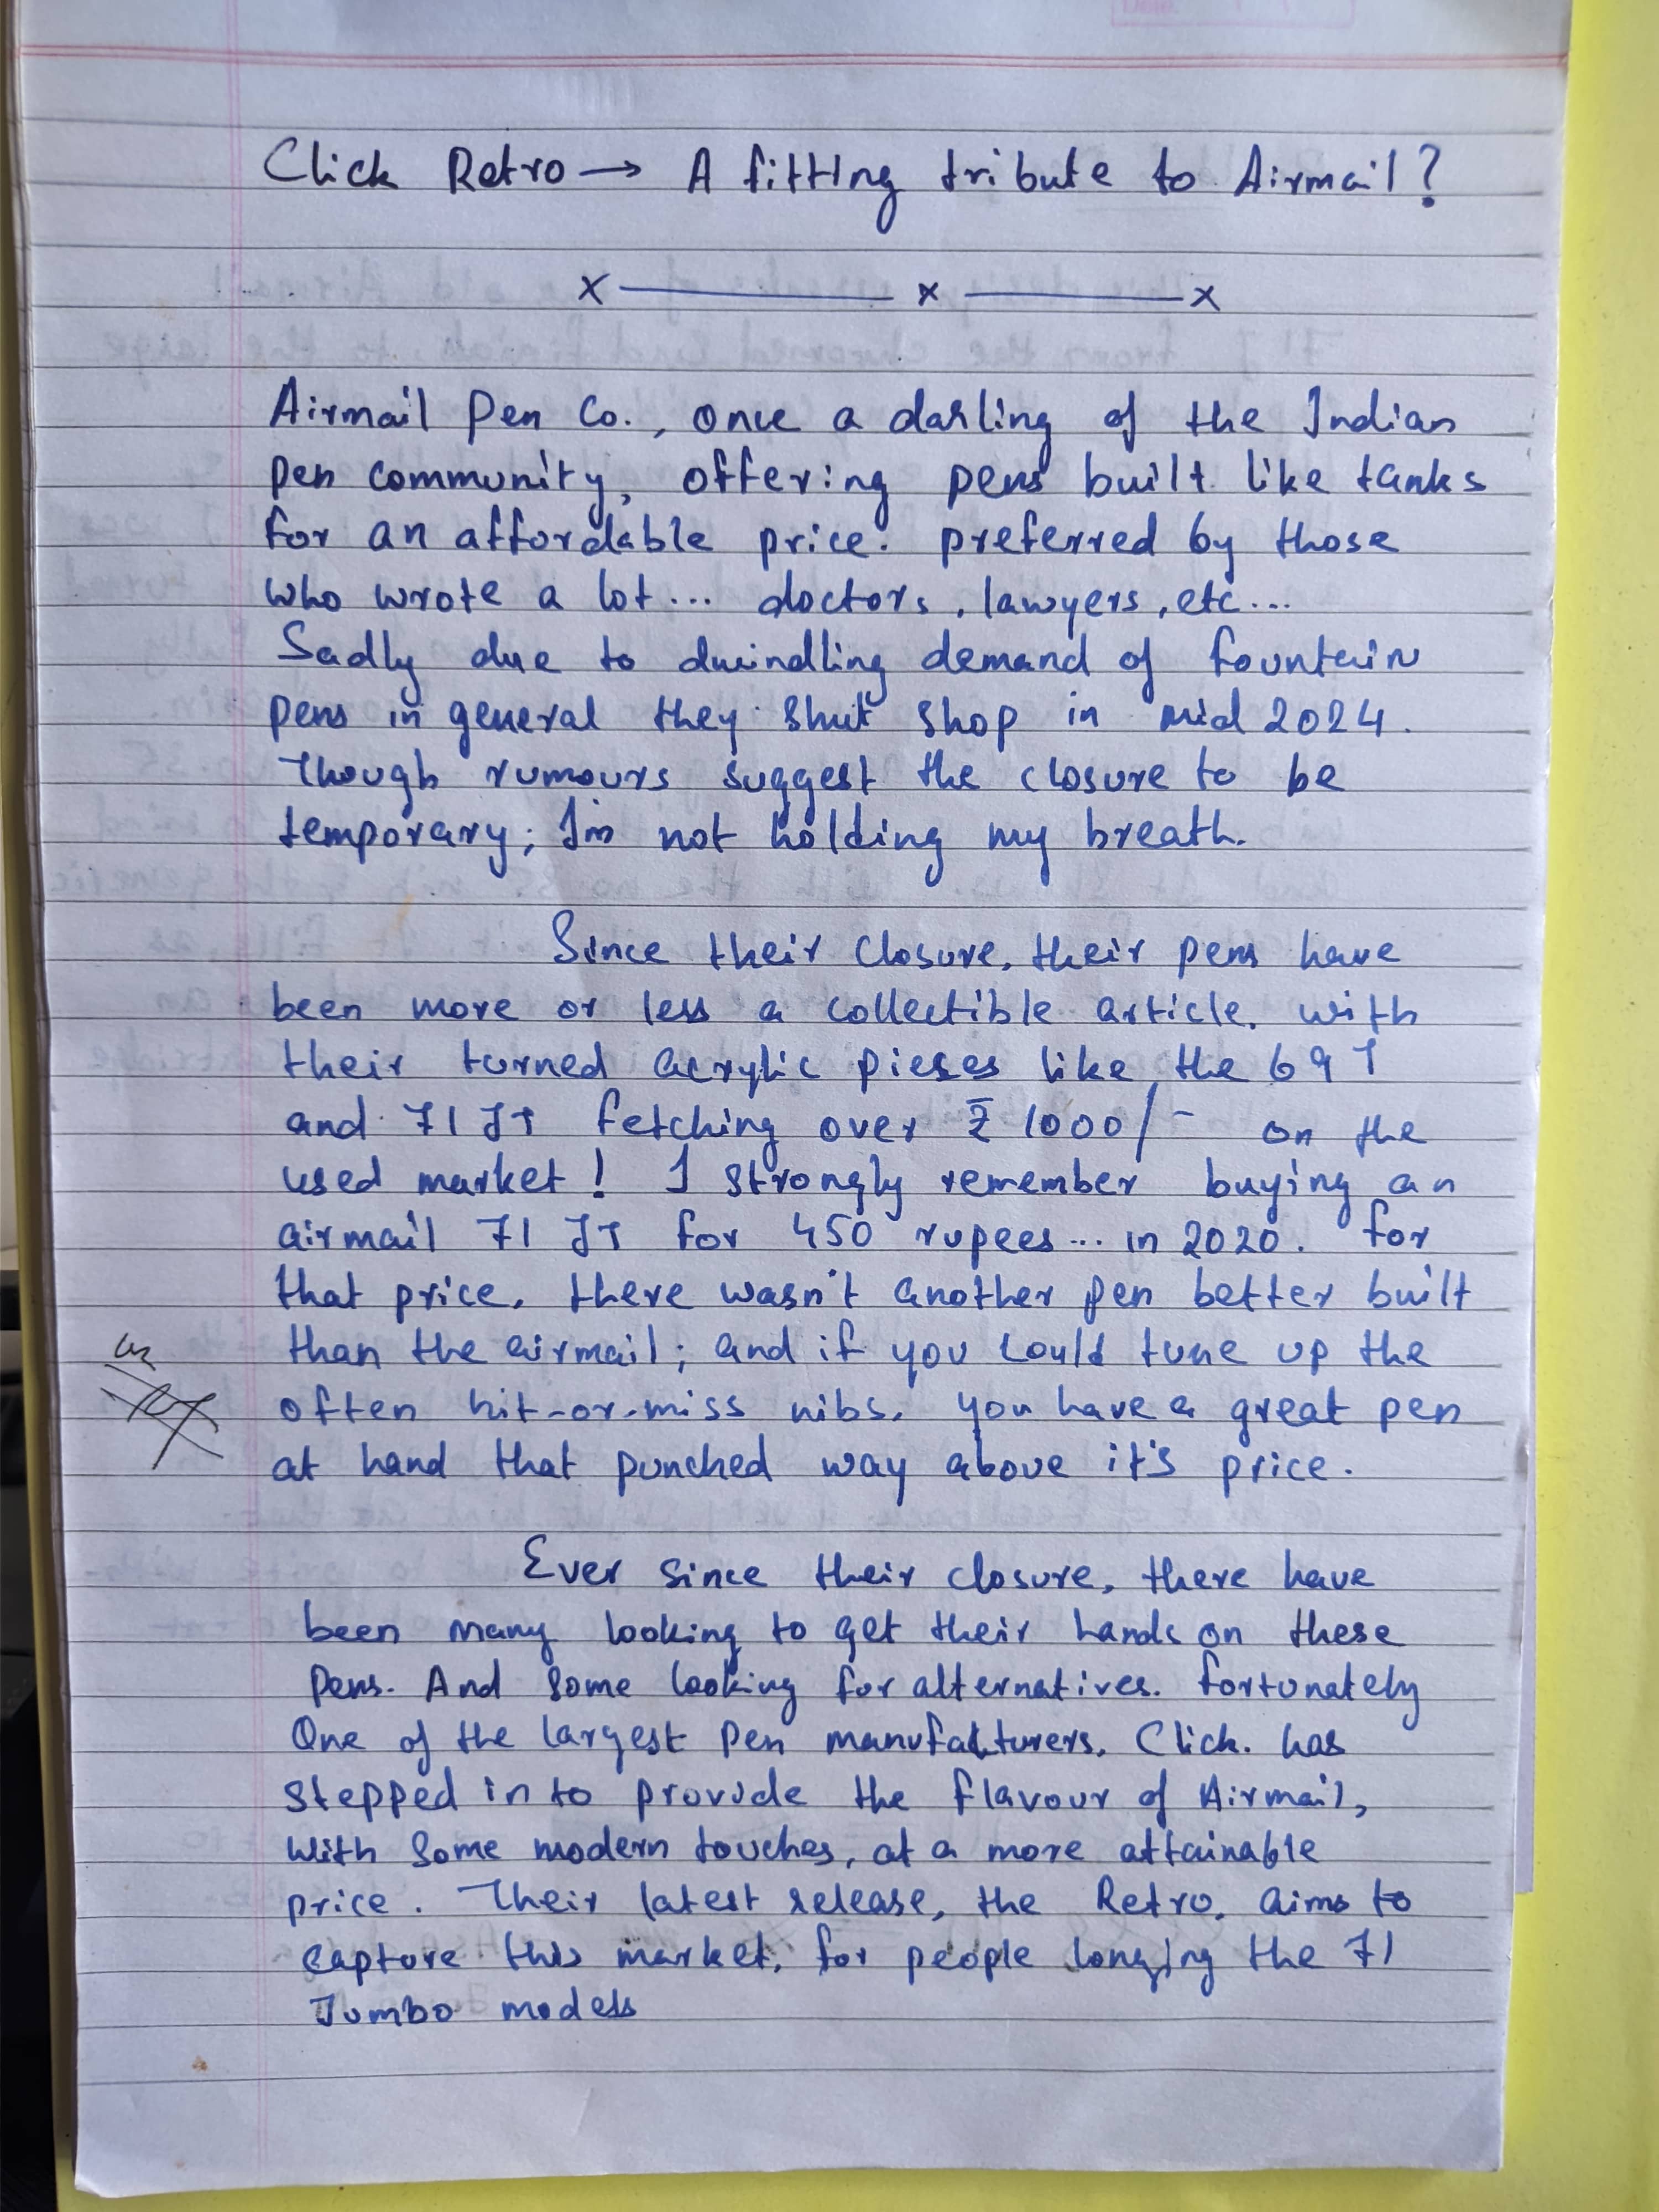 Click Retro → A fitting tribute to Airmail?
x ——— x ——— x
Airmail Pen Co., once a darling of the Indian
pen community, offering pens built like tanks
for an affordable price. preferred by those
who wrote a lot... doctors, lawyers, etc...
Sadly due to dwindling demand of fountain
pens in general they shut shop in mid 2024.
Though rumours suggest the closure to be
temporary; I'm not holding my breath.
Since their closure, their pens have
been more or less a collectible article, with
their turned acrylic pieses like the 69T
and 71JT fetching over ₹1000/- on the
used market! I strongly remember buying an
airmail 71JT for 450 rupees... in 2020. for
that price, there wasn't another pen better built
than the airmail; and if you could tune up the
often hit-or-miss nibs, you have a great pen
at hand that punched way above it's price.
Ever since their closure, there have
been many looking to get their hands on these
pens. And some looking for alternatives. fortunately
One of the largest pen manufakturers, Click. has
stepped in to provide the flavour of Airmail,
with some modern touches, at a more attainable
price. Their latest release, the Retro, aims to
capture this market, for people longing the 71
Jumbo models